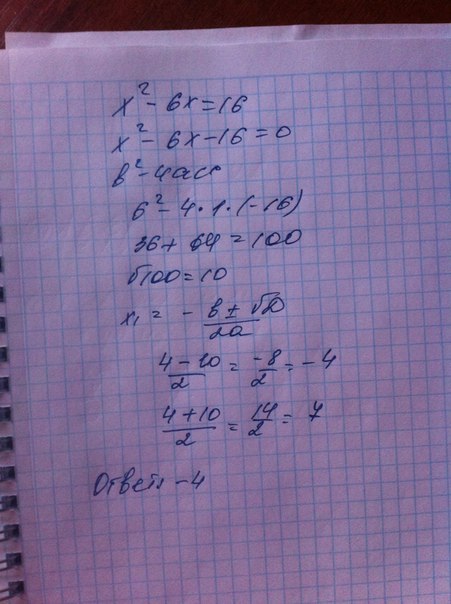 x² - 6x = 16
x² - 6x - 16 = 0
в² - 4ас
6² - 4 · 1 · (-16)
36 + 64 = 100
√100 = 10
x₁ = - в ± √D / 2a
4 - 10 / 2 = -8 / 2 = -4
4 + 10 / 2 = 14 / 2 = 7
Ответ: -4